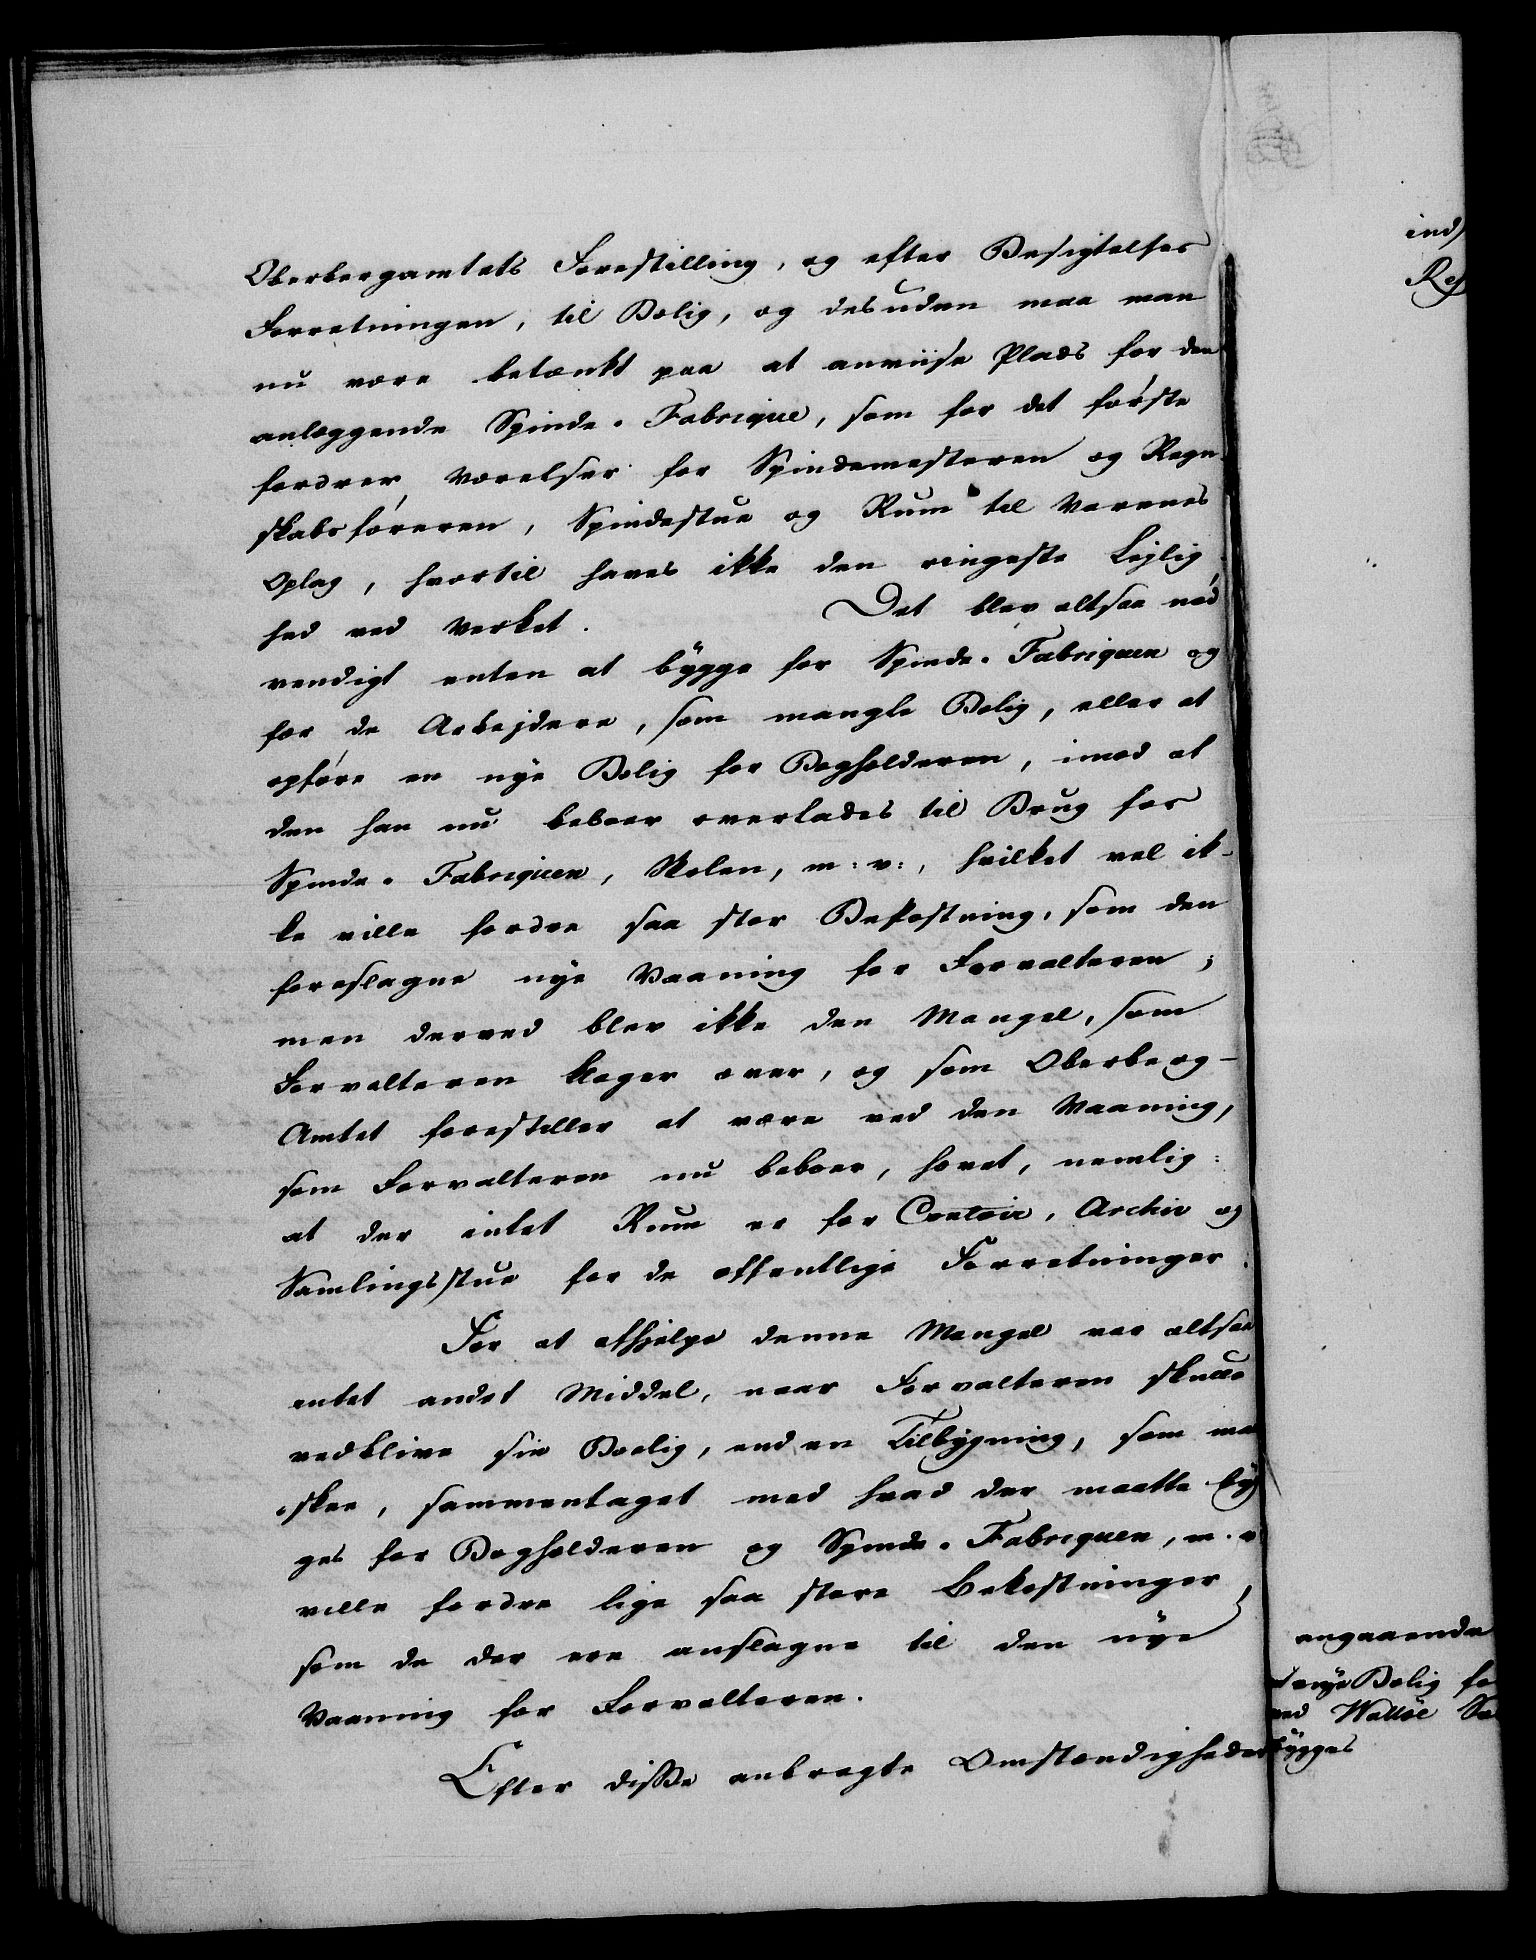 Oberbergamtets Forestilling, og efter Besigtelses
Forretningen, til Bolig, og desuden maa man
nu være betænkt paa at anviise Plads for den
anlæggende Spinde-Fabrique, som for det første
fordrer Værelser for Spindemesteren og Regn-
skabsføreren, Spindestue og Rum til Varenes
Oplag, hvortil haves ikke den ringeste Lejlig-
hed ved Verket. Det blev altsaa nød
vendigt enten at bÿgge for Spinde-Fabriquen og
for de Arbejdere, som mangle Bolig, eller at
opføre en nye Bolig for Bogholderen, imod at
den han nu beboer overlades til Brug for
Spinde-Fabriquen, Skolen, m: v:, hvilket vel ik-
ke ville fordre saa stor Bekostning, som den
foreslagne nye Vaaning for Forvalteren;
men derved blev ikke den Mangel, som
Forvalteren klager over, og som Oberberg-
Amtet forestiller at være ved den Vaaning,
som Forvalteren nu beboer, hævet, nemlig:
at der intet Rum er for Contoir, Archiv og
Samlingsstue for de offentlige Forretninger.
For at afhjelpe denne Mangel var altsaa
intet andet Middel, naar Forvalteren skulde
vedblive sin Boelig, end en Tilbygning, som maa
skee, sammentaget med hvad der maatte byg
ges for Bogholderen og Spinde-Fabriquen, m. v.
ville fordre lige saa store Bekostninger,
som de der ere anslagne til den nÿe
Vaaning for Forvalteren.
Efter disse anbragte Omstændigheder
ind
Res
angaaende
nye Bolig fo
ved Walløe Sa
bÿgges